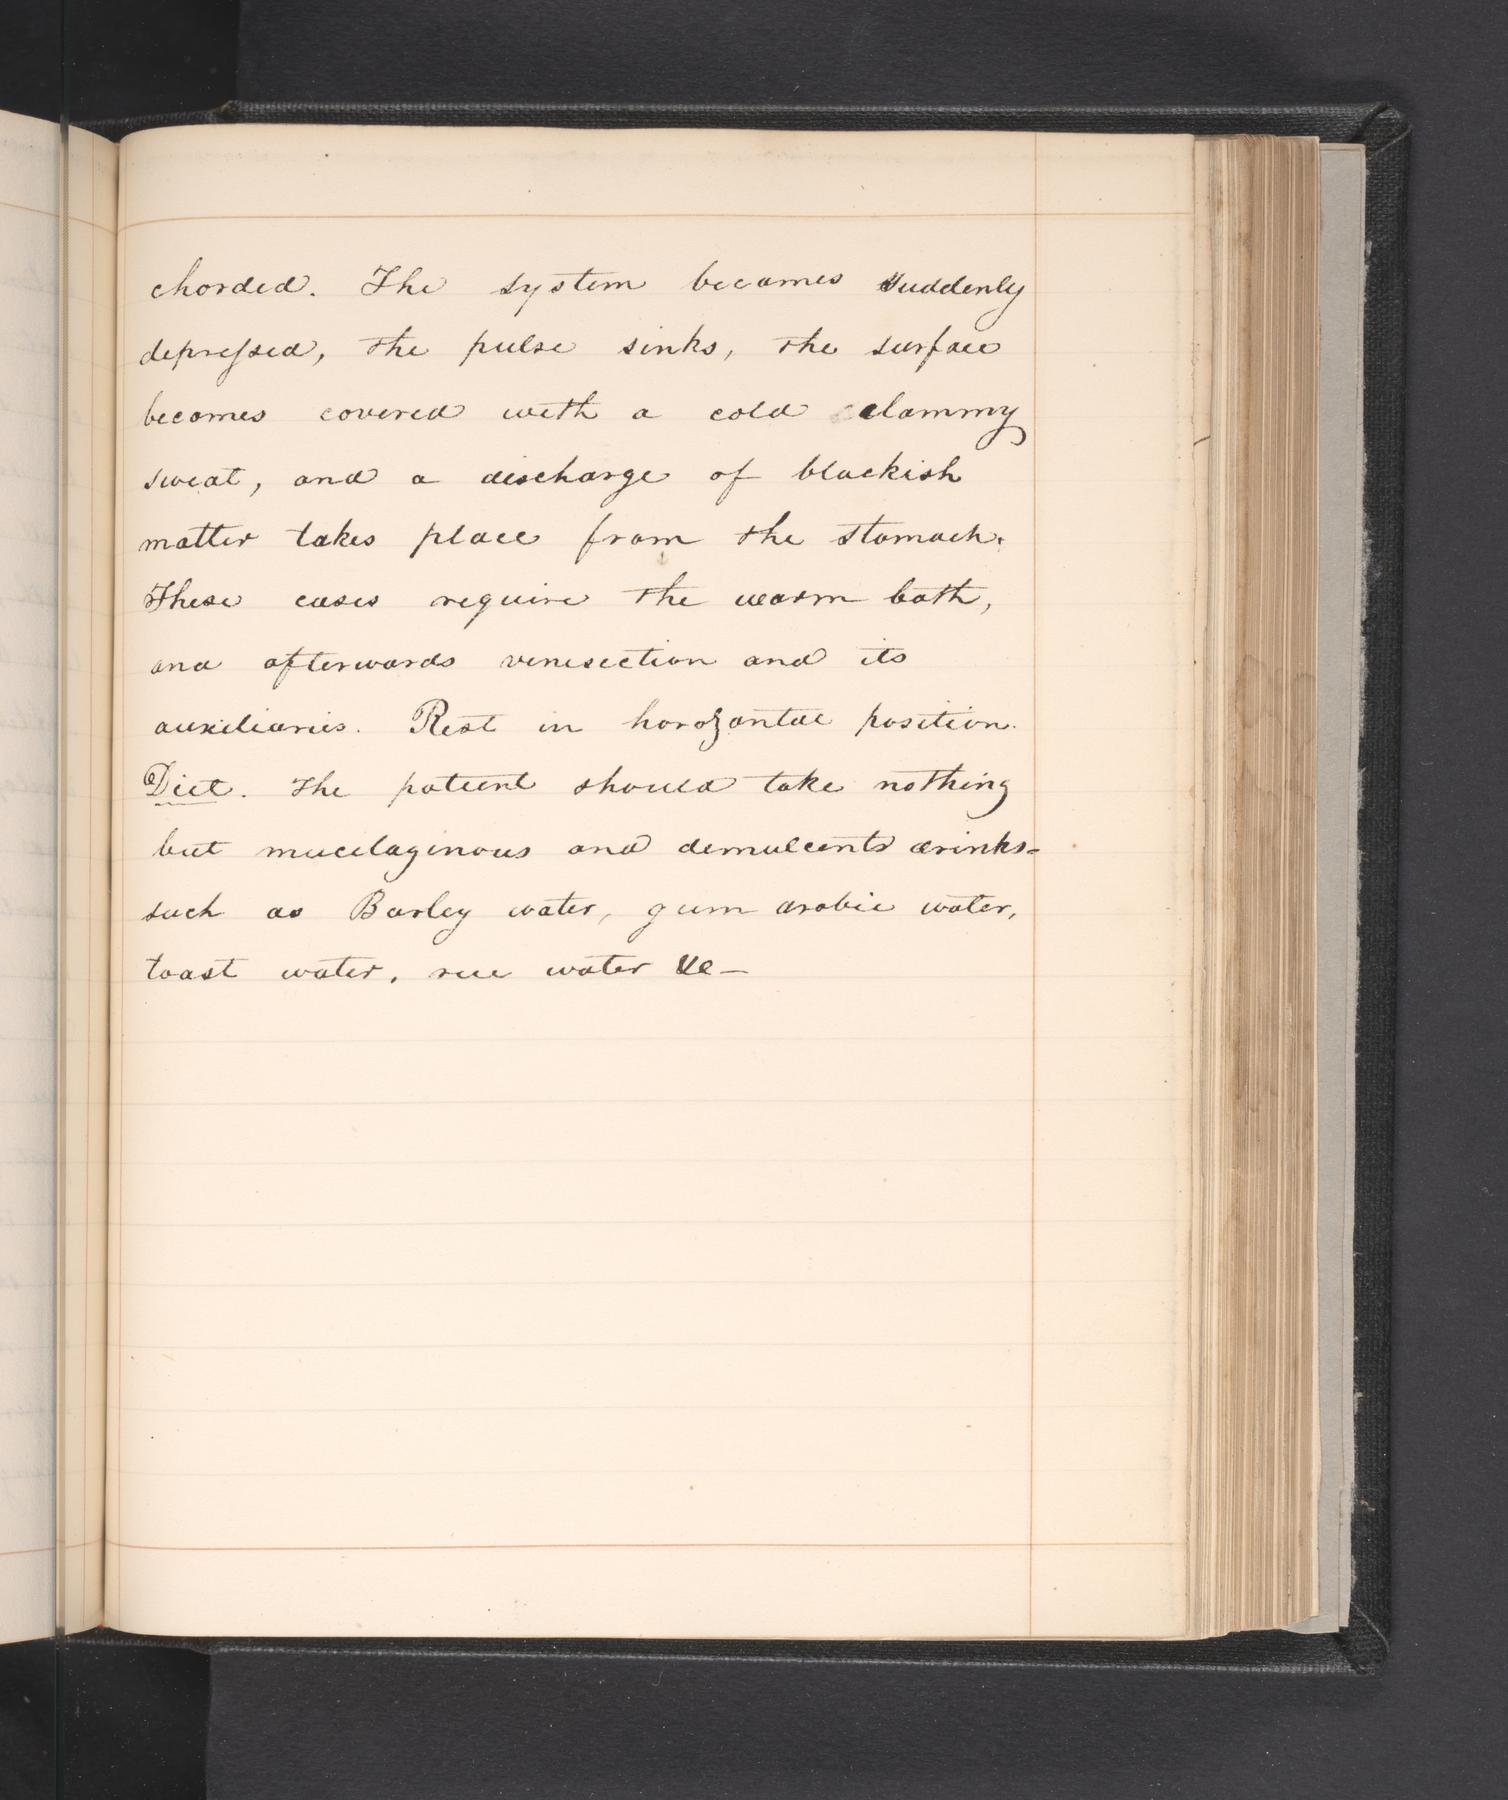 chorded. The system becomes suddenly
depressed, the pulse sinks, the surface
becomes covered with a cold clammy
sweat, and a discharge of blackish
matter takes place from the stomach.
These cases require the warm bath,
and afterwards venesection and its
auxiliaries. Rest in horozantal position.
Diet. The patient should take nothing
but mucilaginous and demulcents drinks-
such as Barley water, gum arabic water,
toast water, rice water &c—